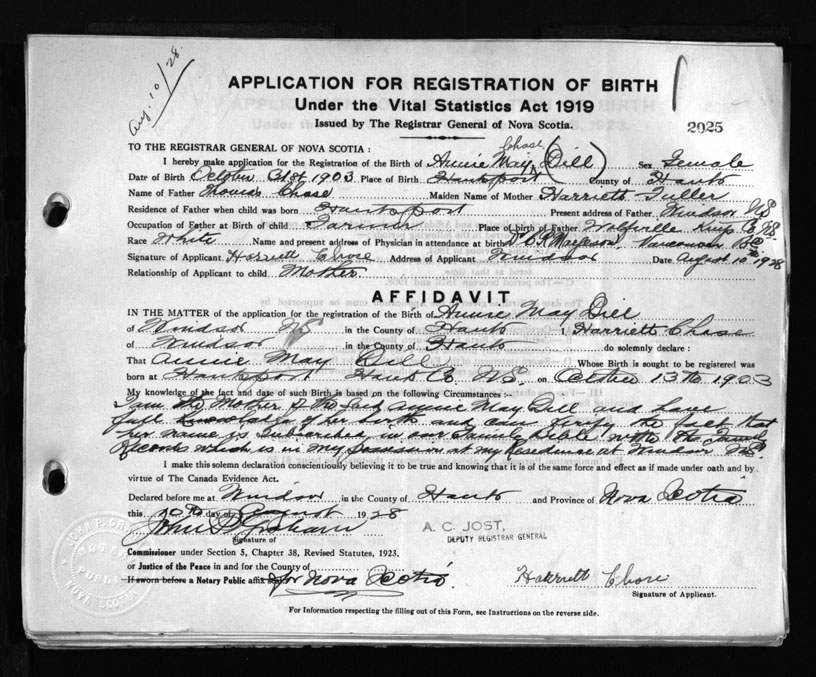 Aug. 10/28
APPLICATION FOR REGISTRATION OF BIRTH
Under the Vital Statistics Act 1919
Issued by The Registrar General of Nova Scotia.
2025
TO THE REGISTRAR GENERAL OF NOVA SCOTIA :
Chase
I hereby make application for the Registration of the Birth of Annie May (Dill) Sex Female
Date of Birth October 1903 Place of Birth Hantsport County of Hants
Name of Father Thomas Chase Maiden Name of Mother Harriett Fuller
Residence of Father when child was born Hantsport Present address of Father Windsor NS
Occupation of Father at Birth of child Farmer Place of birth of Father Wolfville Kings Co NS
Race White Name and present address of Physician in attendance at birth Vancouver BC
Signature of Applicant Harriett Chase Address of Applicant Windsor Date August 10th 1928
Relationship of Applicant to child Mother
AFFIDAVIT
IN THE MATTER of the application for the registration of the Birth of Annie May Dill
of Windsor NS in the County of Hants I, Harriett Chase
of Windsor in the County of Hants do solemnly declare :
That Annie May Dill Whose Birth is sought to be registered was
born at Hantsport Hants Co. NS. on October 13th 1903
My knowledge of the fact and date of such Birth is based on the following Circumstances :-
I am the Mother of the said Annie May Dill and have
full knowledge of her birth and can verify the fact that
her name is Subscribed in our Family Bible with the Family
Records which is in my possession at my residence at Windsor NS
I make this solemn declaration conscientiously believing it to be true and knowing that it is of the same force and effect as if made under oath and by
virtue of The Canada Evidence Act.
Declared before me at Windsor in the County of Hants and Province of Nova Scotia
this 10th day of August 1928
John P Graham
Signature of
A. C. JOST,
DEPUTY REGISTRAR GENERAL
Commissioner under Section 5, Chapter 38, Revised Statutes, 1923,
or Justice of the Peace in and for the County of
If sworn before a Notary Public affix for Nova Scotia
Harriett Chase
Signature of Applicant.
For Information respecting the filling out of this Form, see Instructions on the reverse side.
NOTARY PUBLIC
NOVA SCOTIA